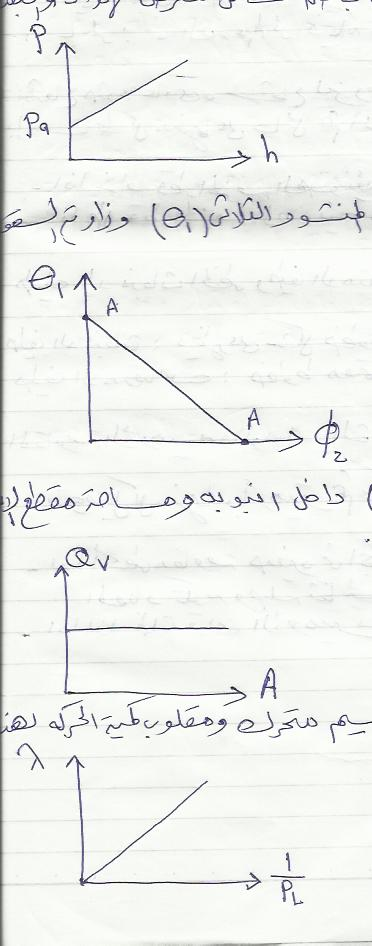 P
Pa
h
المنشور الثلاثى (θ₁) وزاوية السقو
θ₁
A
A
ϕ₂
) داخل انبوبه ومساحة مقطع الا
Qv
A
سيم متحرك ومقلوب كمية الحركه لهذ
λ
1
P_L